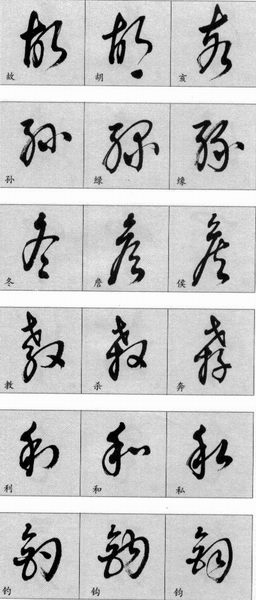 故 胡 亥
孙 绿 缘
冬 詹 侯
教 杀 奔
利 和 私
钓 钩